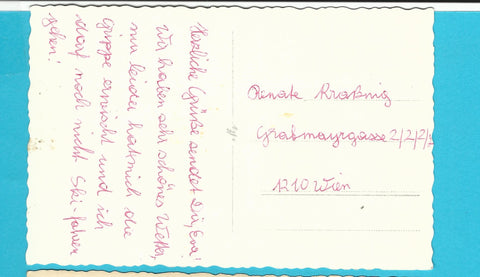 Herzliche Grüße sendet Dir, Eva!
Wir haben sehr schönes Wetter,
nur leider hat mich die
Grippe erwischt und ich
darf noch nicht Ski-fahren
gehen!
Renate Kraßnig
Grabmayrgasse 2/2/2/
1210 Wien